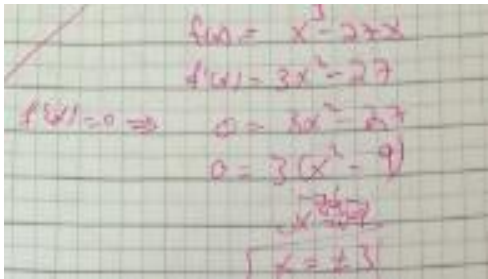 f(x) = x³ - 27x
f'(x) = 3x² - 27
f'(x) = 0 ⇒ 0 = 3x² - 27
0 = 3(x² - 9)
x = ±3